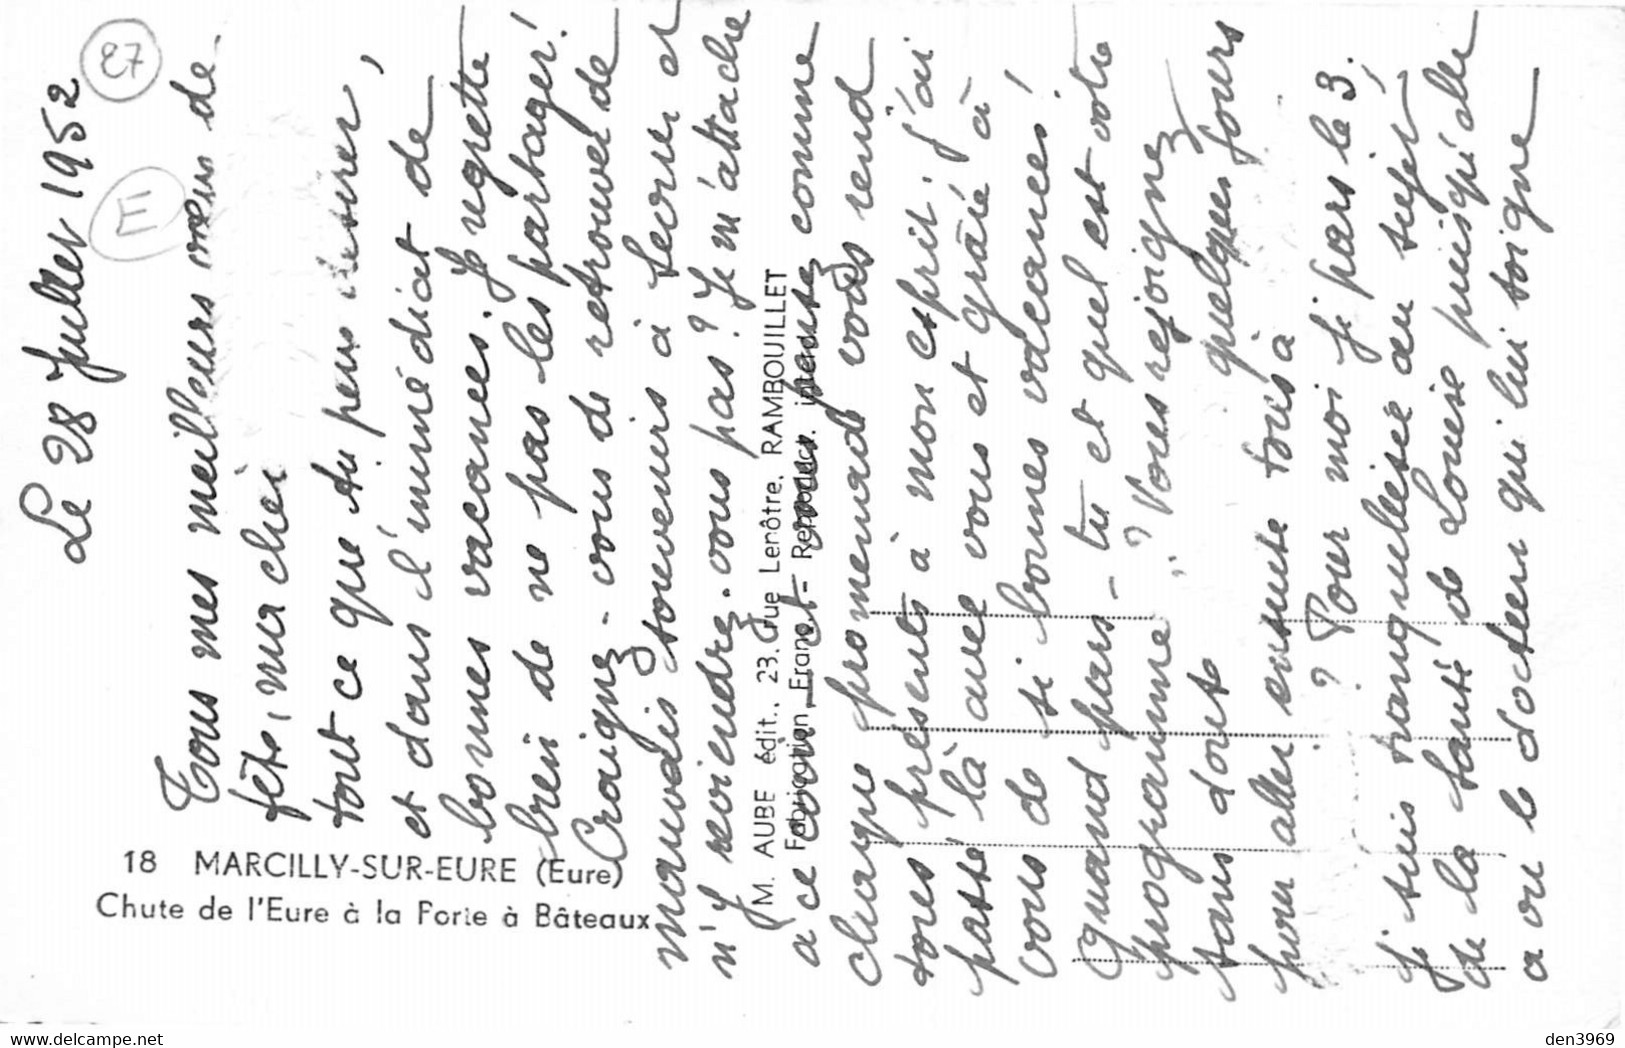 Le 28 Juillet 1952
27
E
Tous mes meilleurs vœux de
fête, ma chèr
tout ce que tu peux désirer,
et dans l'immédiat de
bonnes vacances. Je regrette
bien de ne pas les partager!
Craignez-vous de retrouver de
mauvais souvenirs à
n'y reviendrez-vous pas? Je m'attache
à ce coin et vous pensez comme
chaque promenade vous rend
tous présents à mon esprit. J'ai
passé là avec vous et grâce à
vous de si bonnes vacances!
Quand pars-tu et quel est votre
programme? Vous rejoignez
sans doute quelques jours
pour aller ensuite tous à
? Pour moi je pars le 3.
Je suis tranquillisée au sujet
de la santé de Louise puisqu'elle
a vu le docteur qui lui soigne
18 MARCILLY-SUR-EURE (Eure)
Chute de l'Eure à la Porte à Bâteaux
M. AUBE édit., 23, rue Lenôtre, RAMBOUILLET
Fabrication Franç. - Reproduct. interdite
delcampe.net
den3969